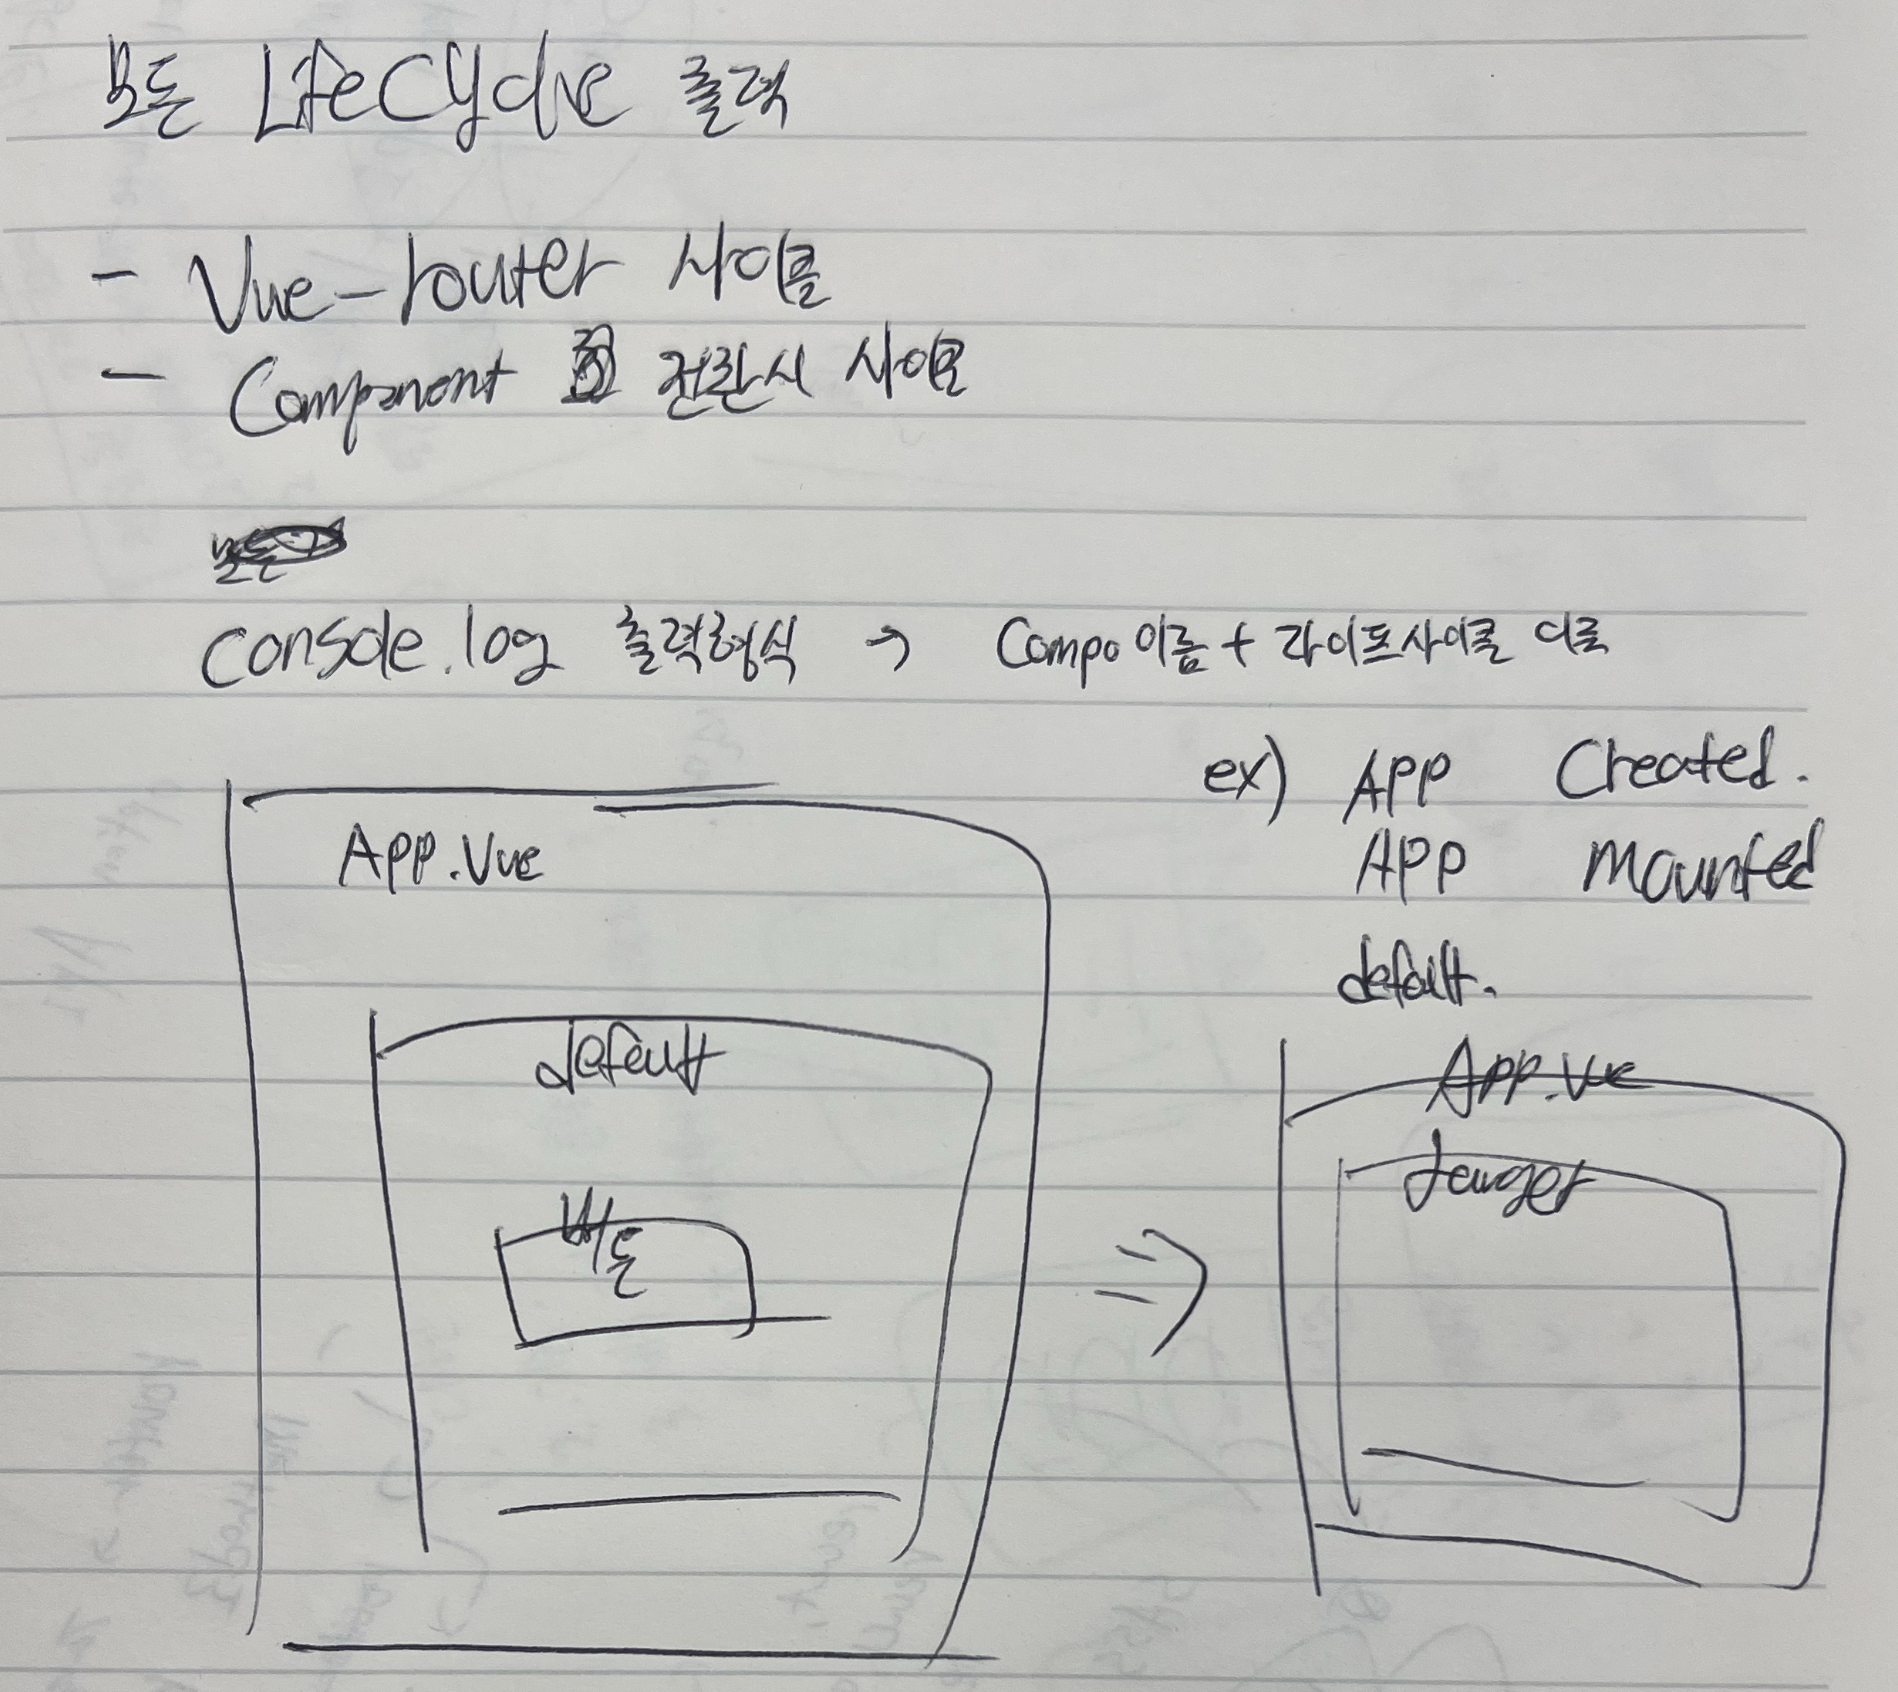 모든 LifeCycle 출력
- Vue-router 사이클
- Component 전환시 사이클
console.log 출력형식 → Compo 이름 + 라이프사이클 이름
ex) APP Created.
APP mounted
default.
App.Vue
default
버튼
⇒
App.Vue